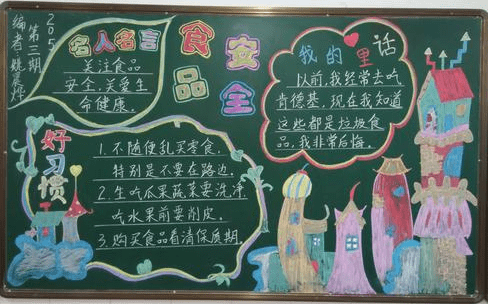 205
第三期
名人名言
关注食品
安全,关爱生
命健康.
食品安全
我的心里话
以前,我经常去吃
肯德基.现在我知道
这些都是垃圾食
品,我非常后悔.
好习惯
1.不随便乱买零食.
特别是不要在路边.
2.生吃瓜果蔬菜要洗净,
吃水果前要削皮.
3.购买食品看清保质期.